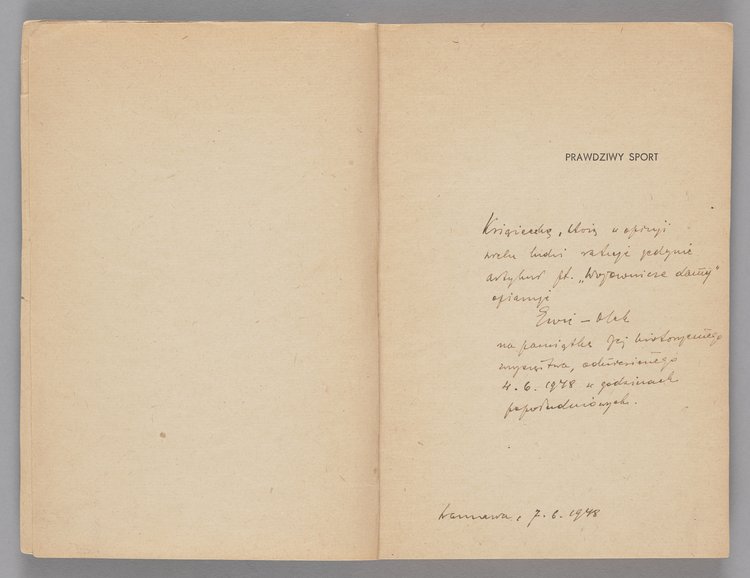 PRAWDZIWY SPORT
Książeczkę, którą w opinji
wielu ludzi ratuje jedynie
artykuł pt. „Wojownicze damy"
ofiaruje
Ewie – Olek
na pamiątkę Jej historycznego
zwycięstwa, odniesionego
4. 6. 1948 w godzinach
popołudniowych.
Warszawa, 7. 6. 1948